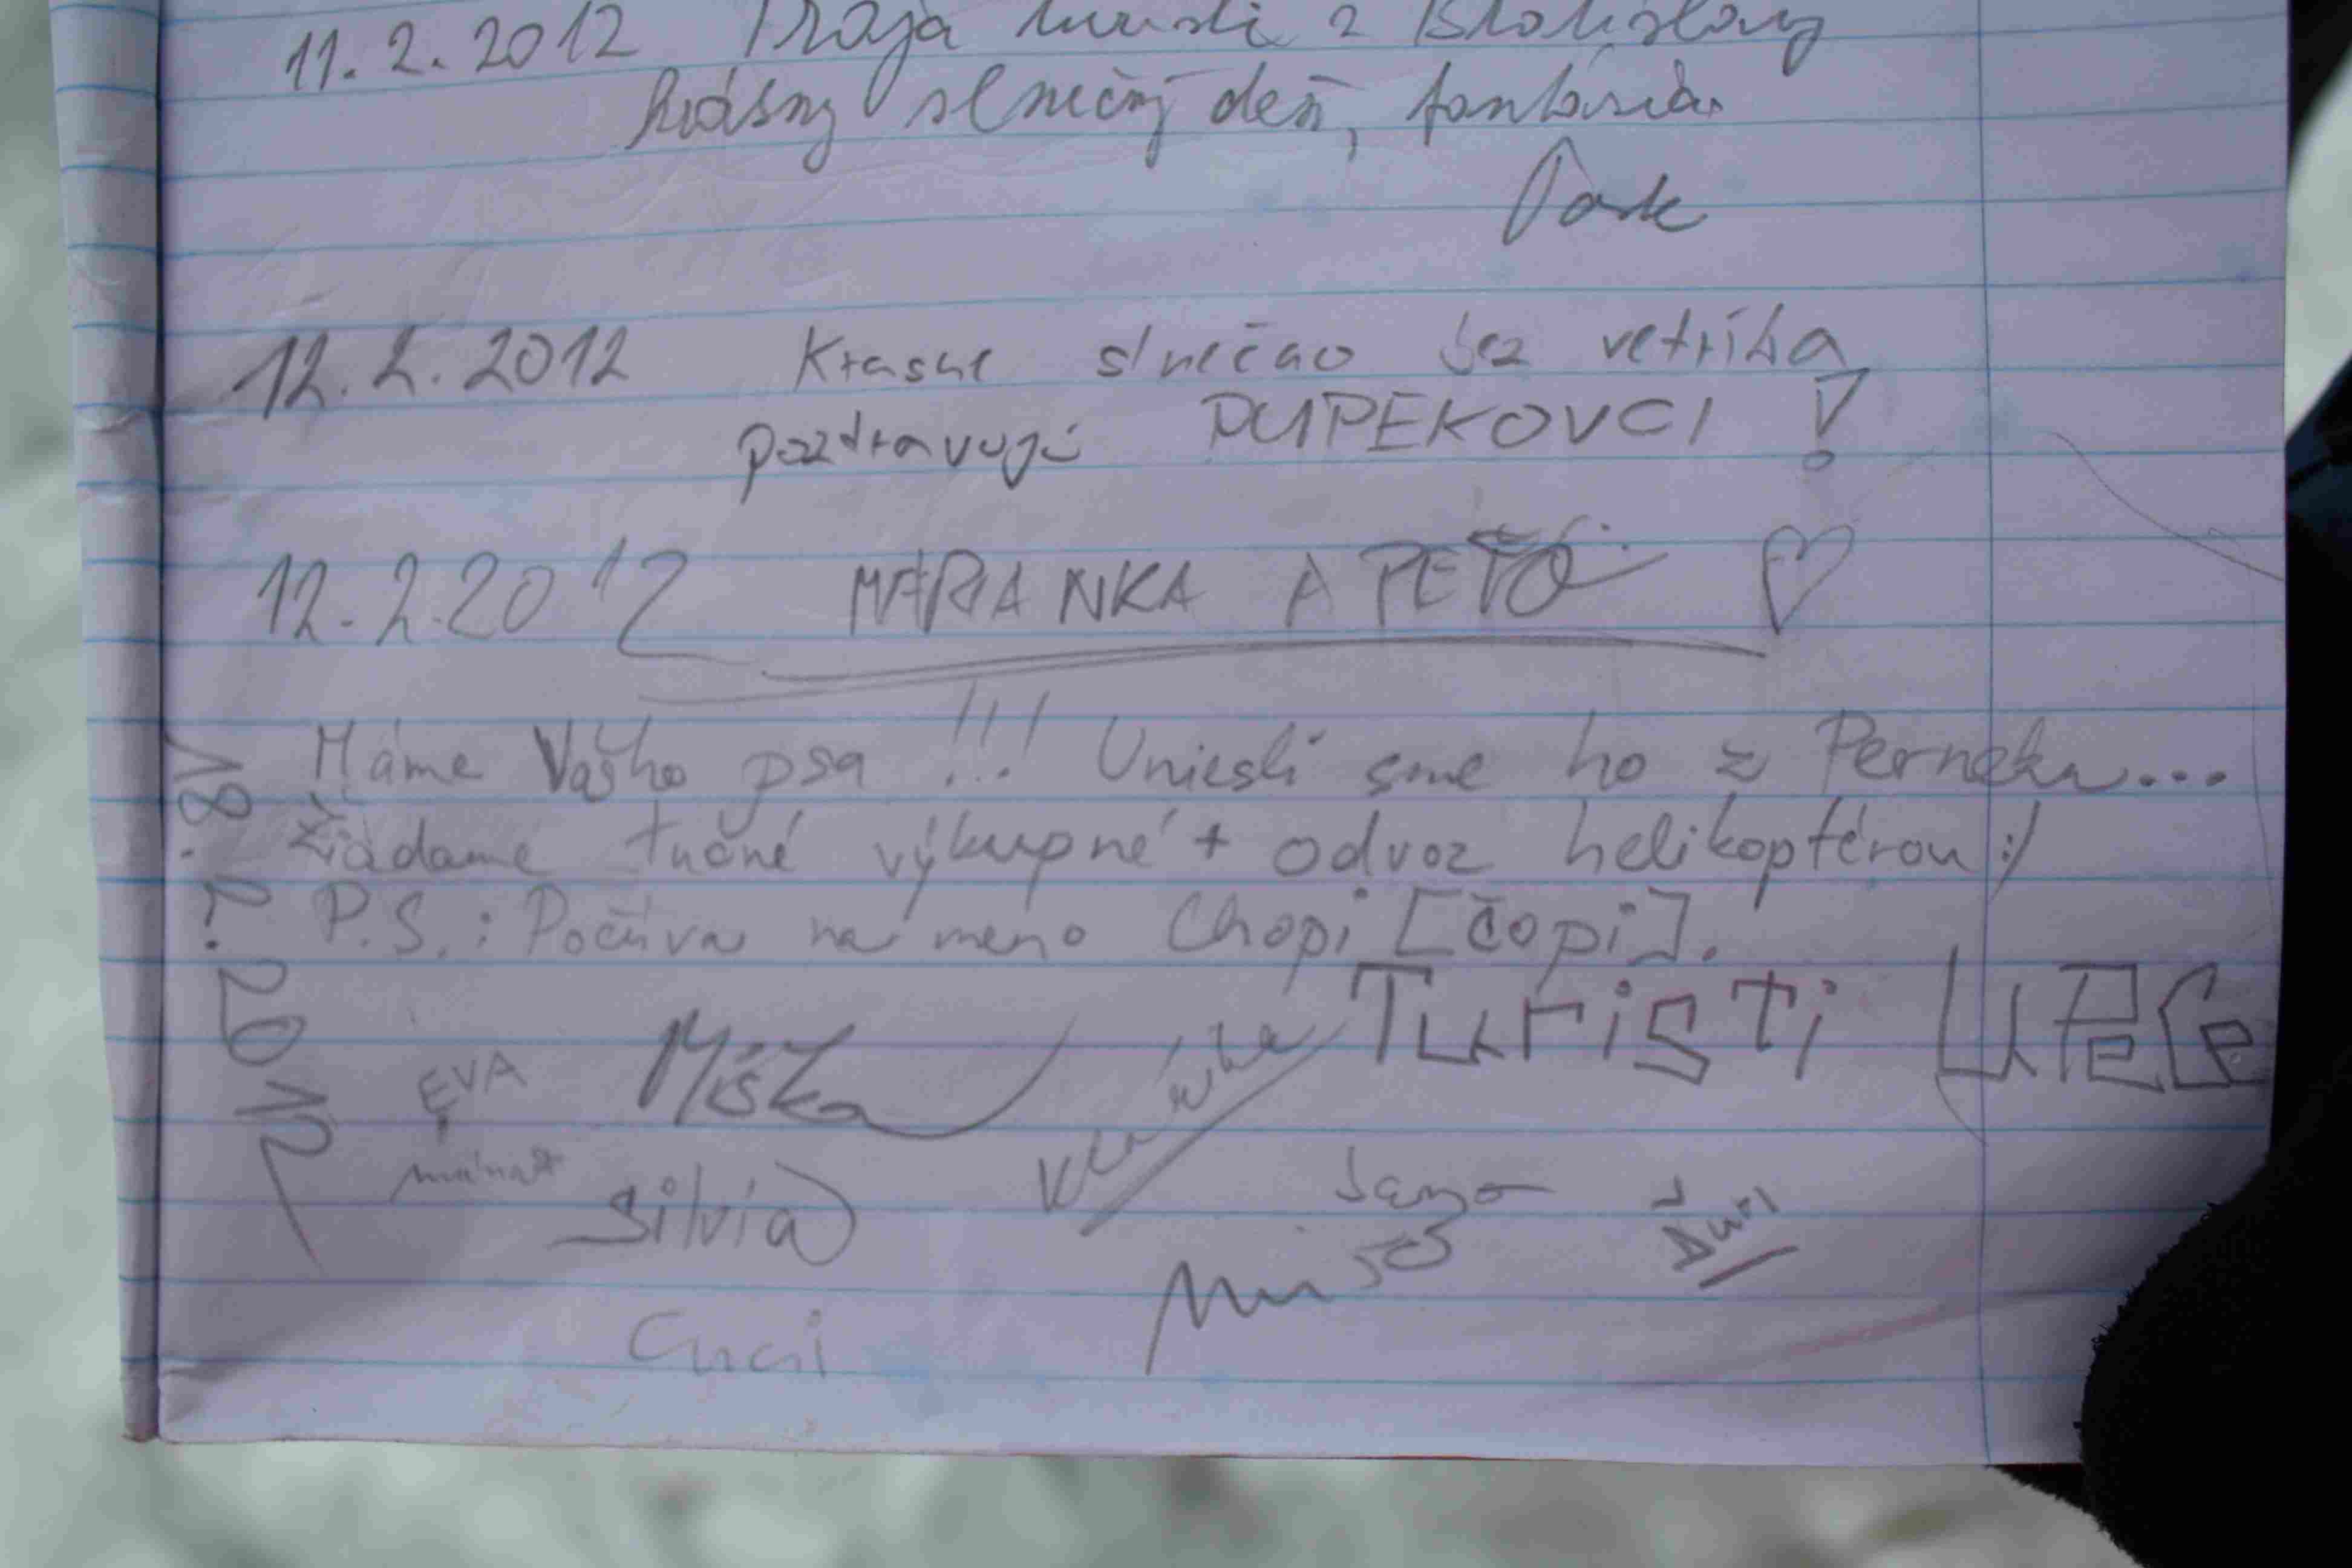 11. 2. 2012 Traja turisti z Bratislavy
krásny slnečný deň, fantázia.
12. 2. 2012 Krasne slnečno bez vetríka
pozdravujú PUPEKOVCI !
12.2.2012 MARIANKA A PEŤO
Máme Vašho psa !!! Uniesli sme ho z Perneka...
Žiadame tučné výkupné + odvoz helikoptérou :)
P.S.: Počúva na meno Chopi [čopi].
18.2.2012
Turisti
EVA
Miška
Klárika
Silvia
Ďuri
Cuci